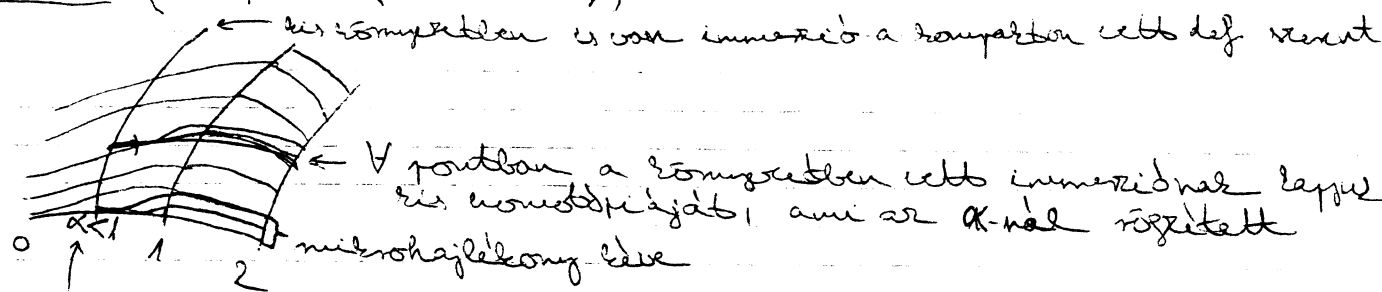 ← kis környezetben is van immerzió a kompakton vett def. szerint
← ∀ pontban a környezetben vett immerziónak kapjuk
kis homotópiáját, ami az α-nál rögzített
0 α<1 1 2 mikrohajlékony kéve